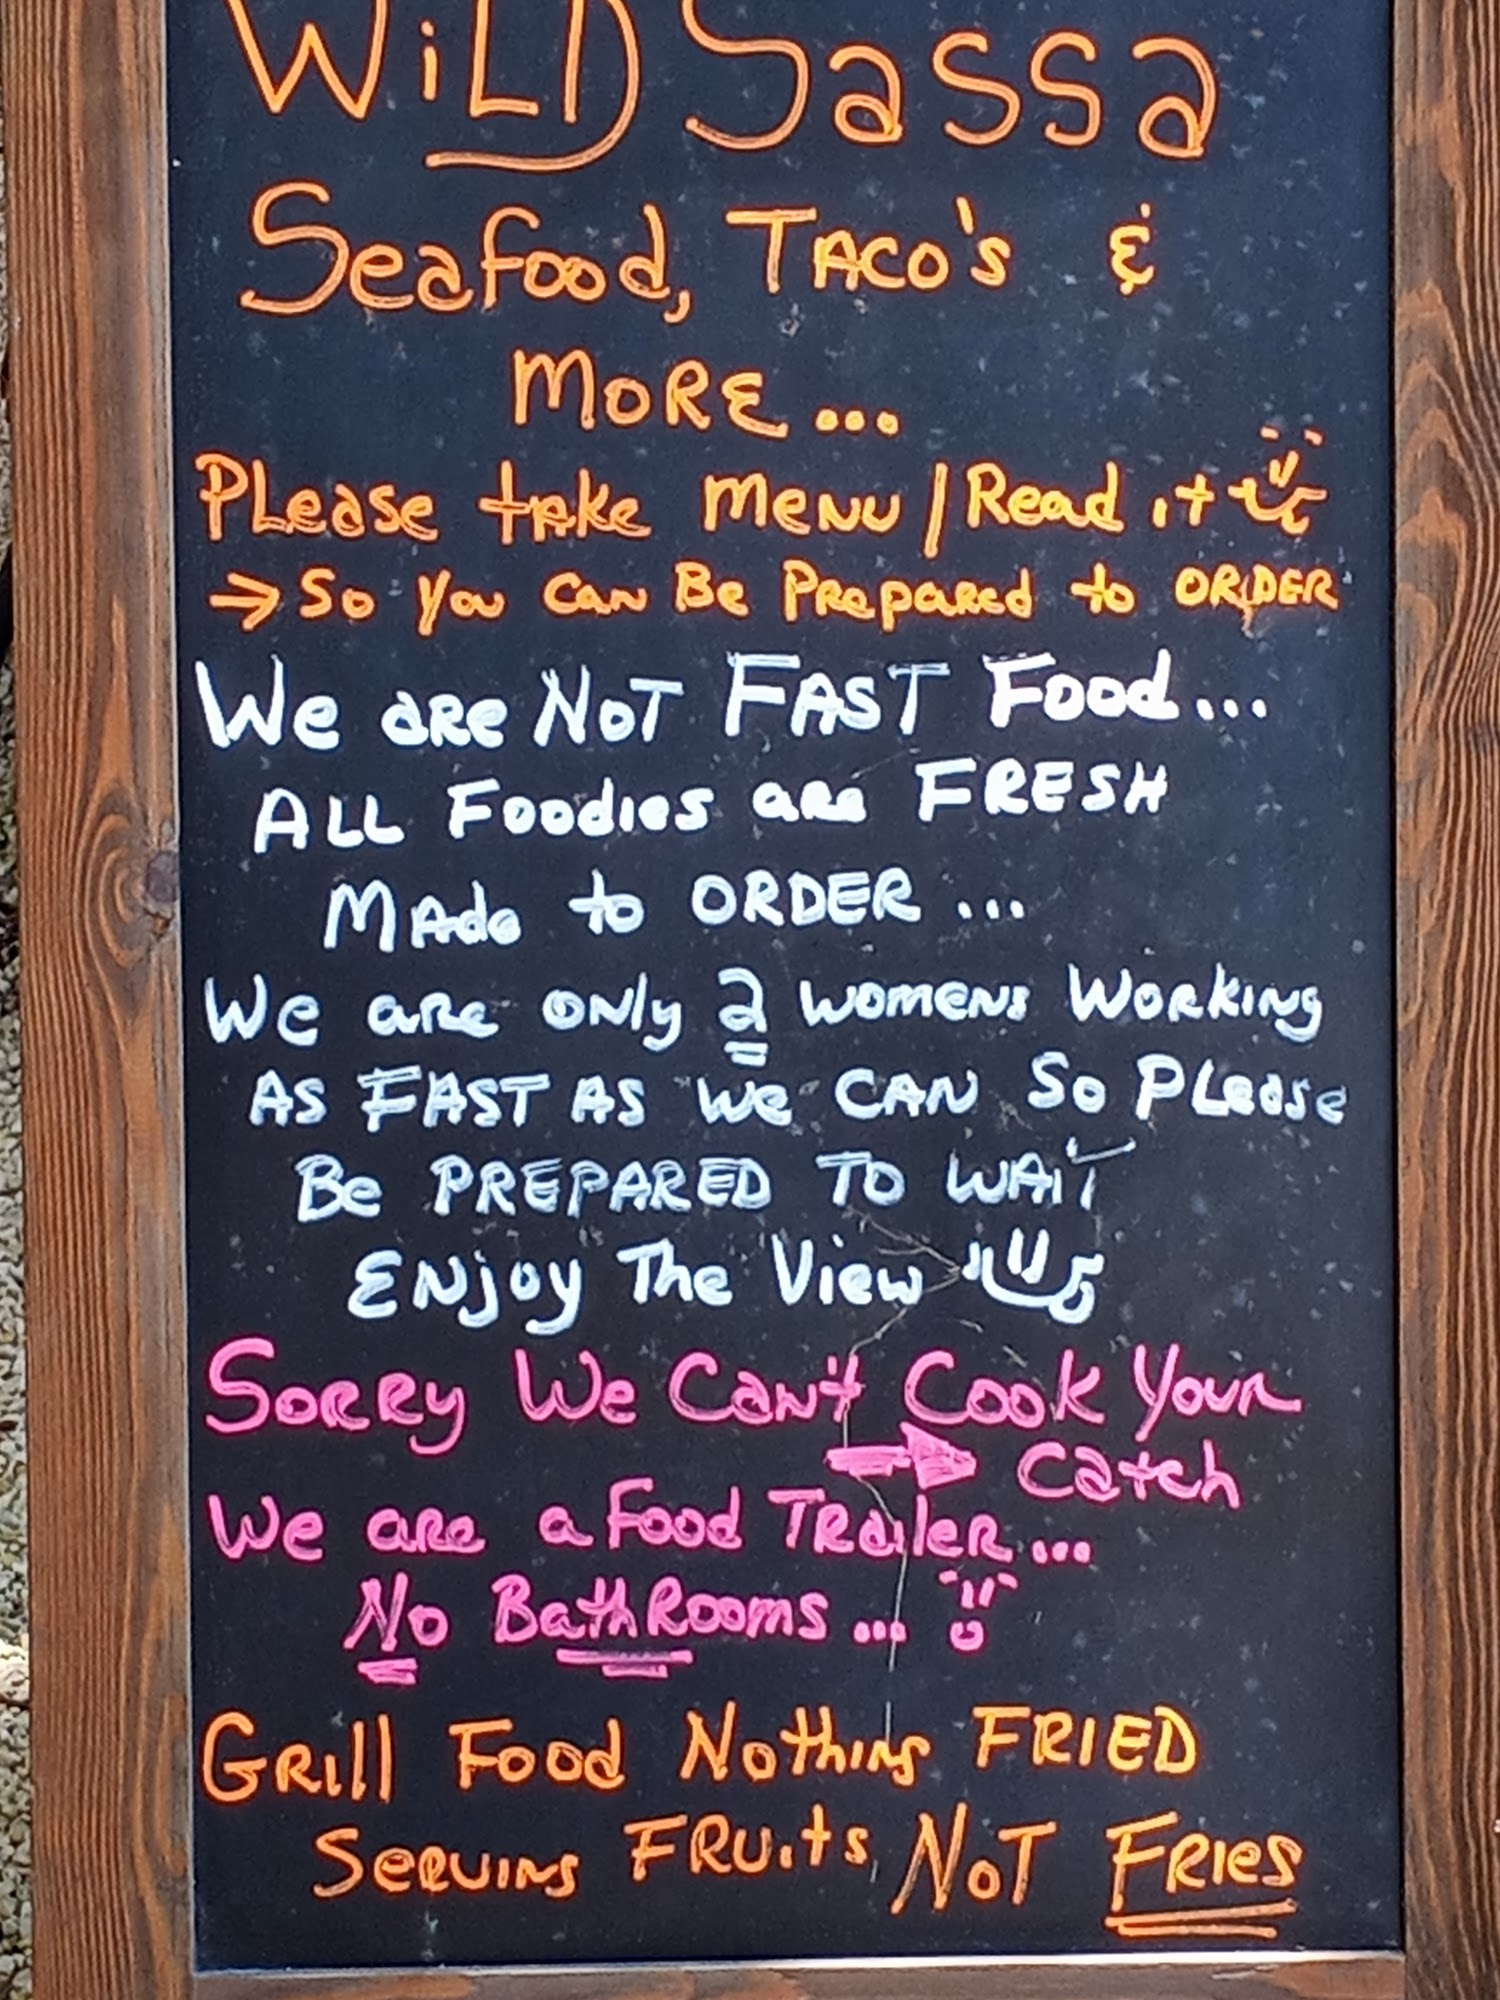 WiLD Sassa
Seafood, TACO'S &
MORE...
PLease take menu / Read it
→ So You Can Be Prepared to ORDER
We are NOT FAST Food...
ALL Foodies are FRESH
Made to ORDER...
We are only 2 womens Working
AS FAST AS "We" CAN So PLease
Be PREPARED TO WAIT
ENjoy The View
SORRy We Can't Cook Your
→ Catch
We are a Food TRaileR...
No BathRooms...
GRill Food Nothing FRIED
Serving FRuits, NOT FRies